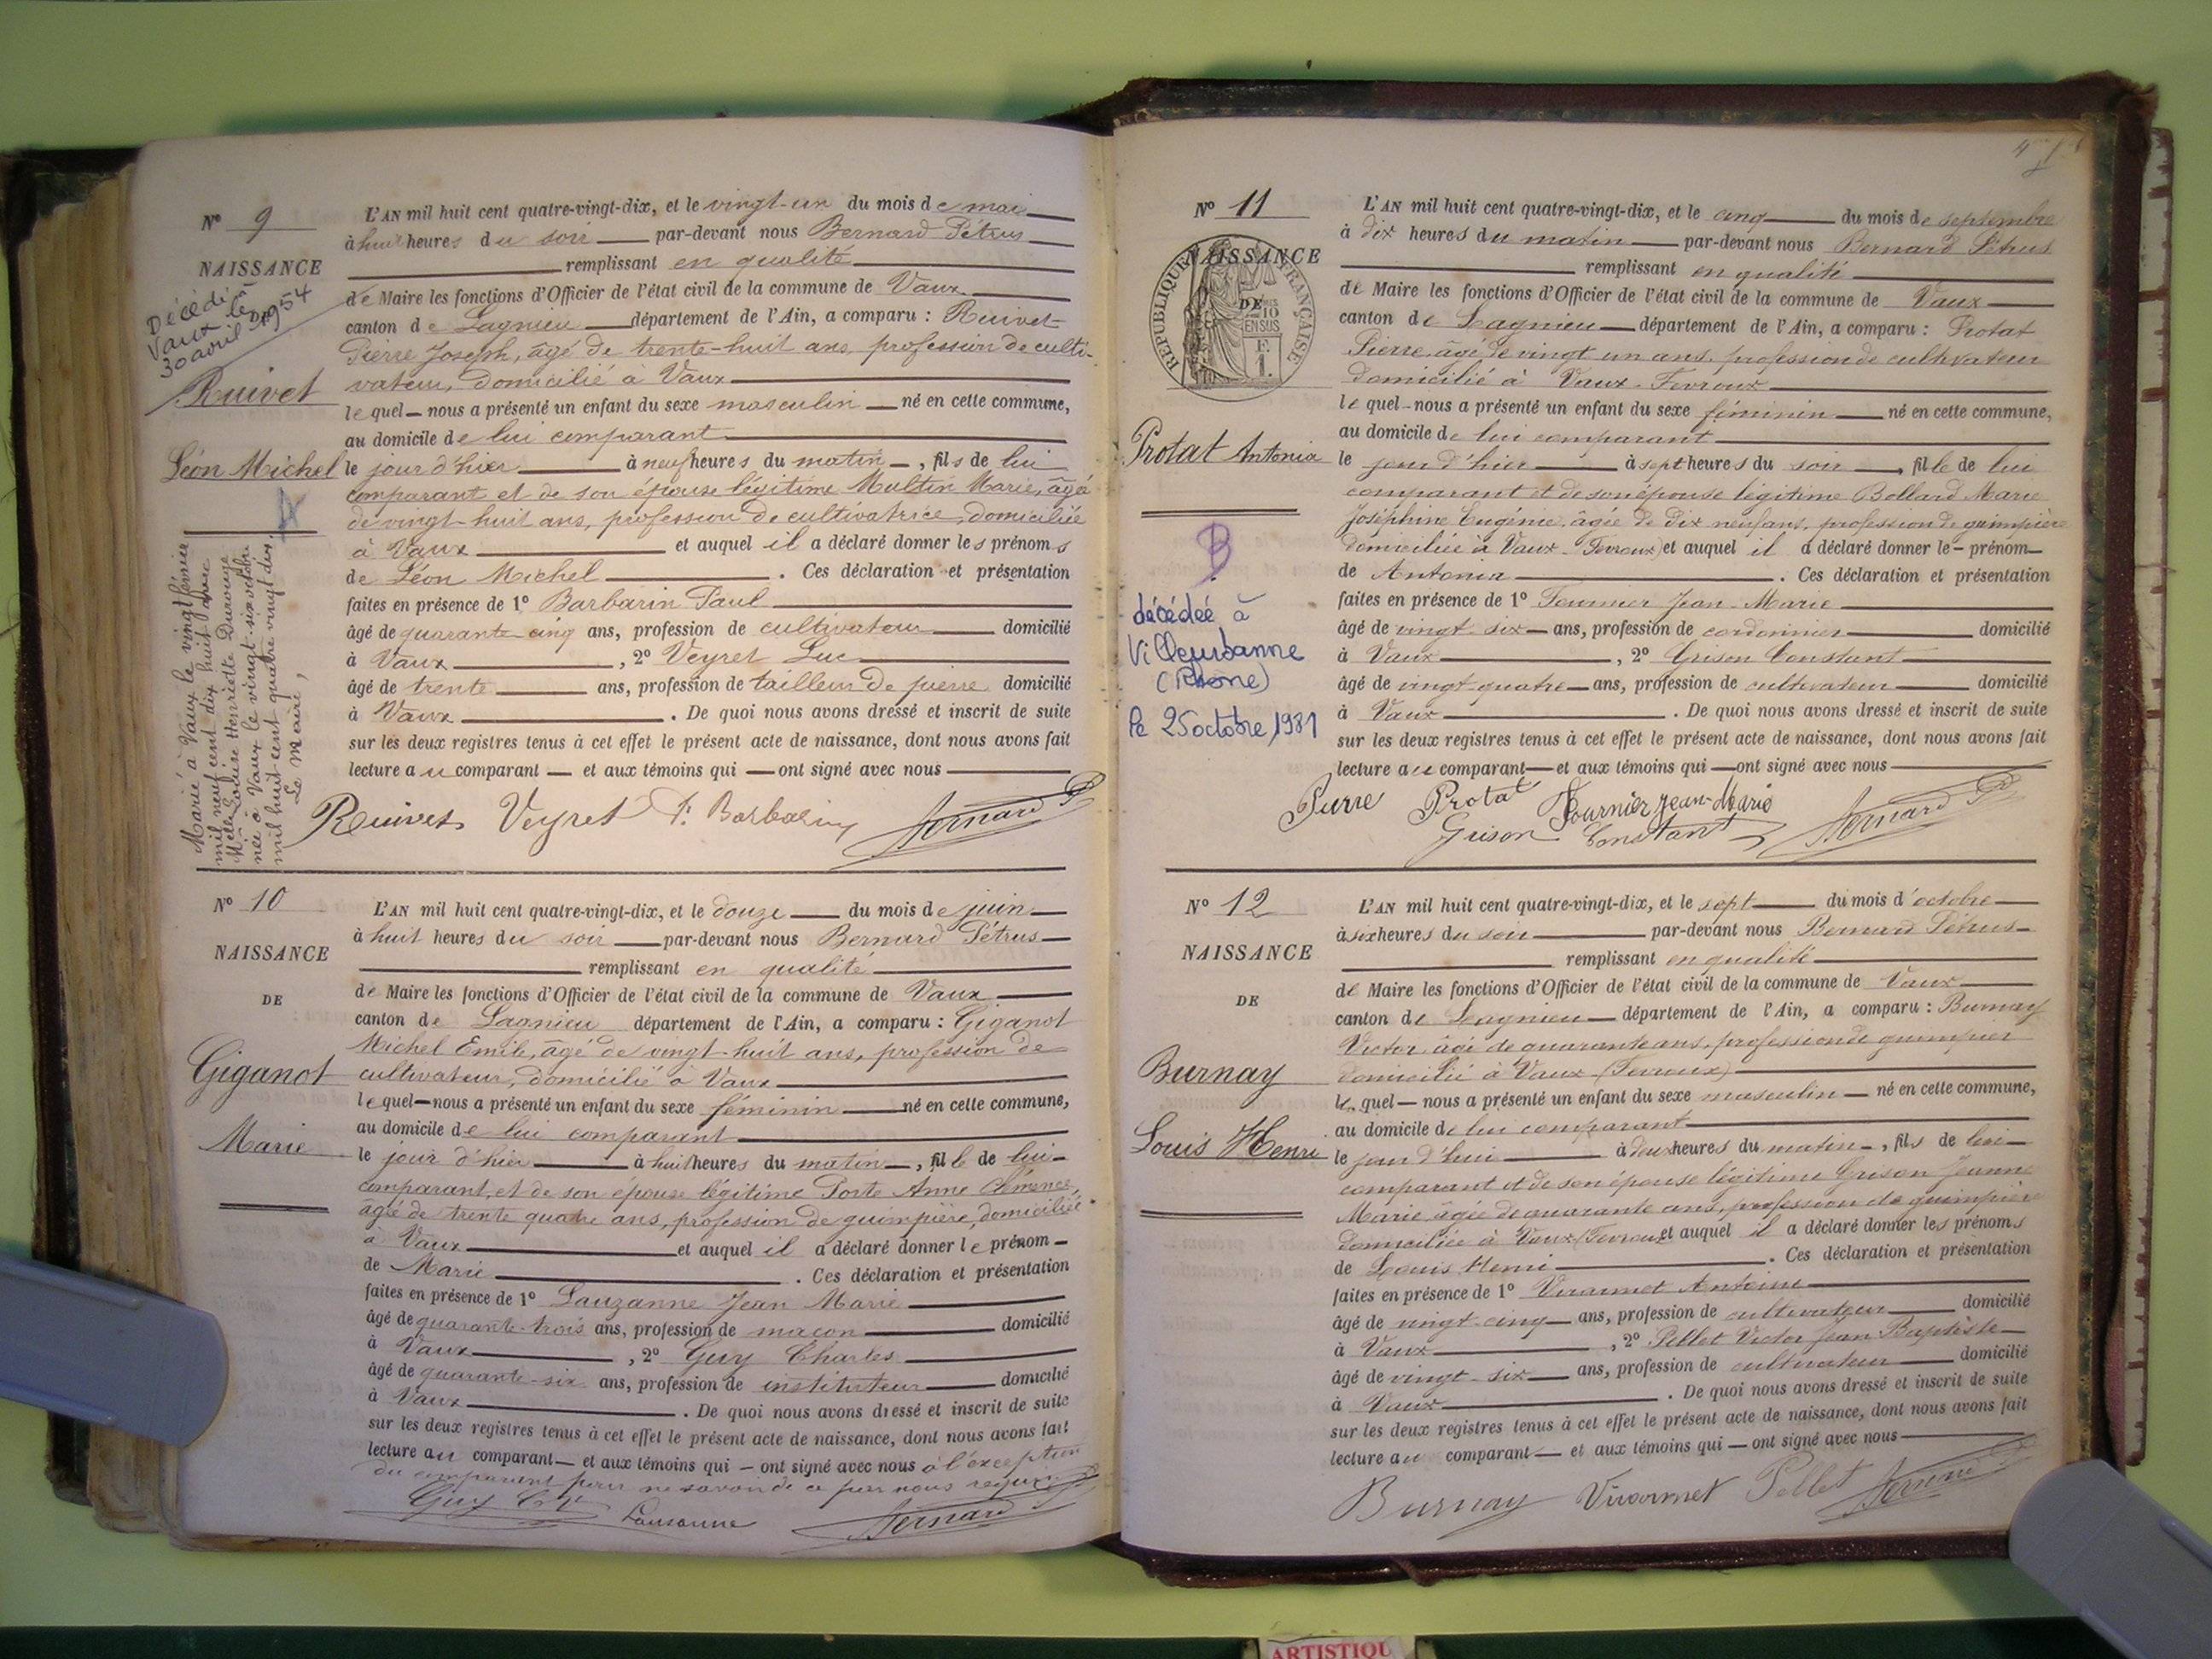 N° 9
NAISSANCE
DE
Décédé à
Vaux le
30 avril 1954
Ruivet
Léon Michel
Marié à Vaux le vingt février
mil neuf cent dix huit avec
Melle Louise Henriette
née à Vaux le vingt-six octobre
mil huit cent quatre vingt dix.
Le Maire,
L'AN mil huit cent quatre-vingt-dix, et le vingt-un du mois de mai
à huit heures du soir par-devant nous Bernard Pétrus
remplissant en qualité
de Maire les fonctions d'Officier de l'état civil de la commune de Vaux
canton de Lagnieu département de l'Ain, a comparu : Ruivet
Pierre Joseph, âgé de trente-huit ans, profession de culti-
vateur, domicilié à Vaux
lequel nous a présenté un enfant du sexe masculin né en cette commune,
au domicile de lui comparant
le jour d'hier à neuf heures du matin, fils de lui
comparant et de son épouse légitime Multin Marie, âgée
de vingt-huit ans, profession de cultivatrice, domiciliée
à Vaux et auquel il a déclaré donner les prénoms
de Léon Michel. Ces déclaration et présentation
faites en présence de 1° Barbarin Paul
âgé de quarante-cinq ans, profession de cultivateur domicilié
à Vaux, 2° Veyret Luc
âgé de trente ans, profession de tailleur de pierre domicilié
à Vaux. De quoi nous avons dressé et inscrit de suite
sur les deux registres tenus à cet effet le présent acte de naissance, dont nous avons fait
lecture au comparant et aux témoins qui ont signé avec nous
Ruivet Veyret P. Barbarin Bernard P
N° 10
NAISSANCE
DE
Giganot
Marie
L'AN mil huit cent quatre-vingt-dix, et le douze du mois de juin
à huit heures du soir par-devant nous Bernard Pétrus
remplissant en qualité
de Maire les fonctions d'Officier de l'état civil de la commune de Vaux
canton de Lagnieu département de l'Ain, a comparu : Giganot
Michel Emile, âgé de vingt-huit ans, profession de
cultivateur, domicilié à Vaux
lequel nous a présenté un enfant du sexe féminin né en cette commune,
au domicile de lui comparant
le jour d'hier à huit heures du matin, fille de lui
comparant, et de son épouse légitime Porte Anne Clémence,
âgé de trente quatre ans, profession de guimpière, domiciliée
à Vaux et auquel il a déclaré donner le prénom
de Marie. Ces déclaration et présentation
faites en présence de 1° Lauzanne Jean Marie
âgé de quarante-trois ans, profession de maçon domicilié
à Vaux, 2° Guy Charles
âgé de quarante-six ans, profession de instituteur domicilié
à Vaux. De quoi nous avons dressé et inscrit de suite
sur les deux registres tenus à cet effet le présent acte de naissance, dont nous avons fait
lecture au comparant et aux témoins qui ont signé avec nous à l'exception
du comparant pour ne savoir de ce par nous requis
Guy Lausanne Bernard
4
N° 11
NAISSANCE
DE
RÉPUBLIQUE FRANÇAISE
2/10
EN SUS
F.
1.
Protat Antonia
B
décédée à
Villeurbanne
(Rhône)
le 25 octobre 1981
L'AN mil huit cent quatre-vingt-dix, et le cinq du mois de septembre
à dix heures du matin par-devant nous Bernard Pétrus
remplissant en qualité
de Maire les fonctions d'Officier de l'état civil de la commune de Vaux
canton de Lagnieu département de l'Ain, a comparu : Protat
Pierre, âgé de vingt un ans, profession de cultivateur
domicilié à Vaux-Fevroux
lequel nous a présenté un enfant du sexe féminin né en cette commune,
au domicile de lui comparant
le jour d'hier à sept heures du soir, fille de lui
comparant et de son épouse légitime Bollard Marie
Joséphine Eugénie, âgée de dix neuf ans, profession de guimpière
domiciliée à Vaux-Fevroux et auquel il a déclaré donner le prénom
de Antonia. Ces déclaration et présentation
faites en présence de 1° Fournier Jean-Marie
âgé de vingt-six ans, profession de cordonnier domicilié
à Vaux, 2° Grison Constant
âgé de vingt-quatre ans, profession de cultivateur domicilié
à Vaux. De quoi nous avons dressé et inscrit de suite
sur les deux registres tenus à cet effet le présent acte de naissance, dont nous avons fait
lecture au comparant et aux témoins qui ont signé avec nous
Pierre Protat Fournier Jean-Marie
Grison Constant Bernard P
N° 12
NAISSANCE
DE
Burnay
Louis Henri
L'AN mil huit cent quatre-vingt-dix, et le sept du mois d'octobre
à six heures du soir par-devant nous Bernard Pétrus
remplissant en qualité
de Maire les fonctions d'Officier de l'état civil de la commune de Vaux
canton de Lagnieu département de l'Ain, a comparu : Burnay
Victor, âgé de quarante ans, profession de guimpier
domicilié à Vaux (Fevroux)
lequel nous a présenté un enfant du sexe masculin né en cette commune,
au domicile de lui comparant
le jour d'hui à deux heures du matin, fils de lui
comparant et de son épouse légitime Grison Jeanne
Marie, âgée de quarante ans, profession de guimpière
domiciliée à Vaux (Fevroux) et auquel il a déclaré donner les prénoms
de Louis Henri. Ces déclaration et présentation
faites en présence de 1° Antoine
âgé de vingt-cinq ans, profession de cultivateur domicilié
à Vaux, 2° Pellet Victor Jean Baptiste
âgé de vingt-six ans, profession de cultivateur domicilié
à Vaux. De quoi nous avons dressé et inscrit de suite
sur les deux registres tenus à cet effet le présent acte de naissance, dont nous avons fait
lecture au comparant et aux témoins qui ont signé avec nous
Burnay Pellet Bernard
ARTISTIQU